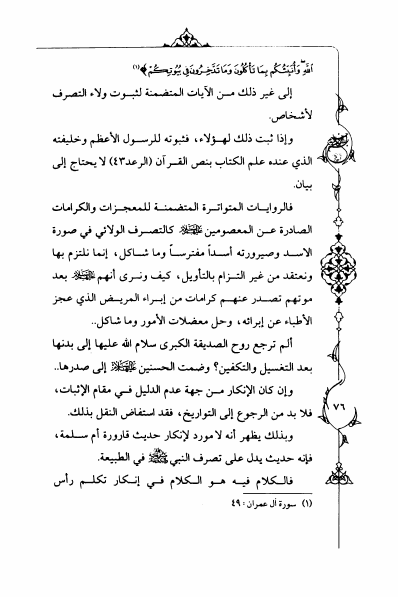 اللَّهِ وَأُنَبِّئُكُم بِمَا تَأْكُلُونَ وَمَا تَدَّخِرُونَ فِي بُيُوتِكُمْ﴾(١)
إلى غير ذلك من الآيات المتضمنة لثبوت ولاء التصرف
لأشخاص.
وإذا ثبت ذلك لهؤلاء، فثبوته للرسول الأعظم وخليفته
الذي عنده علم الكتاب بنص القرآن (الرعد٤٣) لا يحتاج إلى
بيان.
فالروايات المتواترة المتضمنة للمعجزات والكرامات
الصادرة عن المعصومين كالتصرف الولائي في صورة
الاسد وصيرورته أسداً مفترساً وما شاكل، إنما نلتزم بها
ونعتقد من غير التزام بالتأويل، كيف ونرى أنهم بعد
موتهم تصدر عنهم كرامات من إبراء المريض الذي عجز
الأطباء عن إبرائه، وحل معضلات الأمور وما شاكل..
ألم ترجع روح الصديقة الكبرى سلام الله عليها إلى بدنها
بعد التغسيل والتكفين؟ وضمت الحسنين إلى صدرها..
وإن كان الإنكار من جهة عدم الدليل في مقام الإثبات،
فلا بد من الرجوع إلى التواريخ، فقد استفاض النقل بذلك.
وبذلك يظهر أنه لا مورد لإنكار حديث قارورة أم سلمة،
فإنه حديث يدل على تصرف النبي ﷺ في الطبيعة.
فالكلام فيه هو الكلام في إنكار تكلم رأس
(١) سورة آل عمران: ٤٩
٧٦